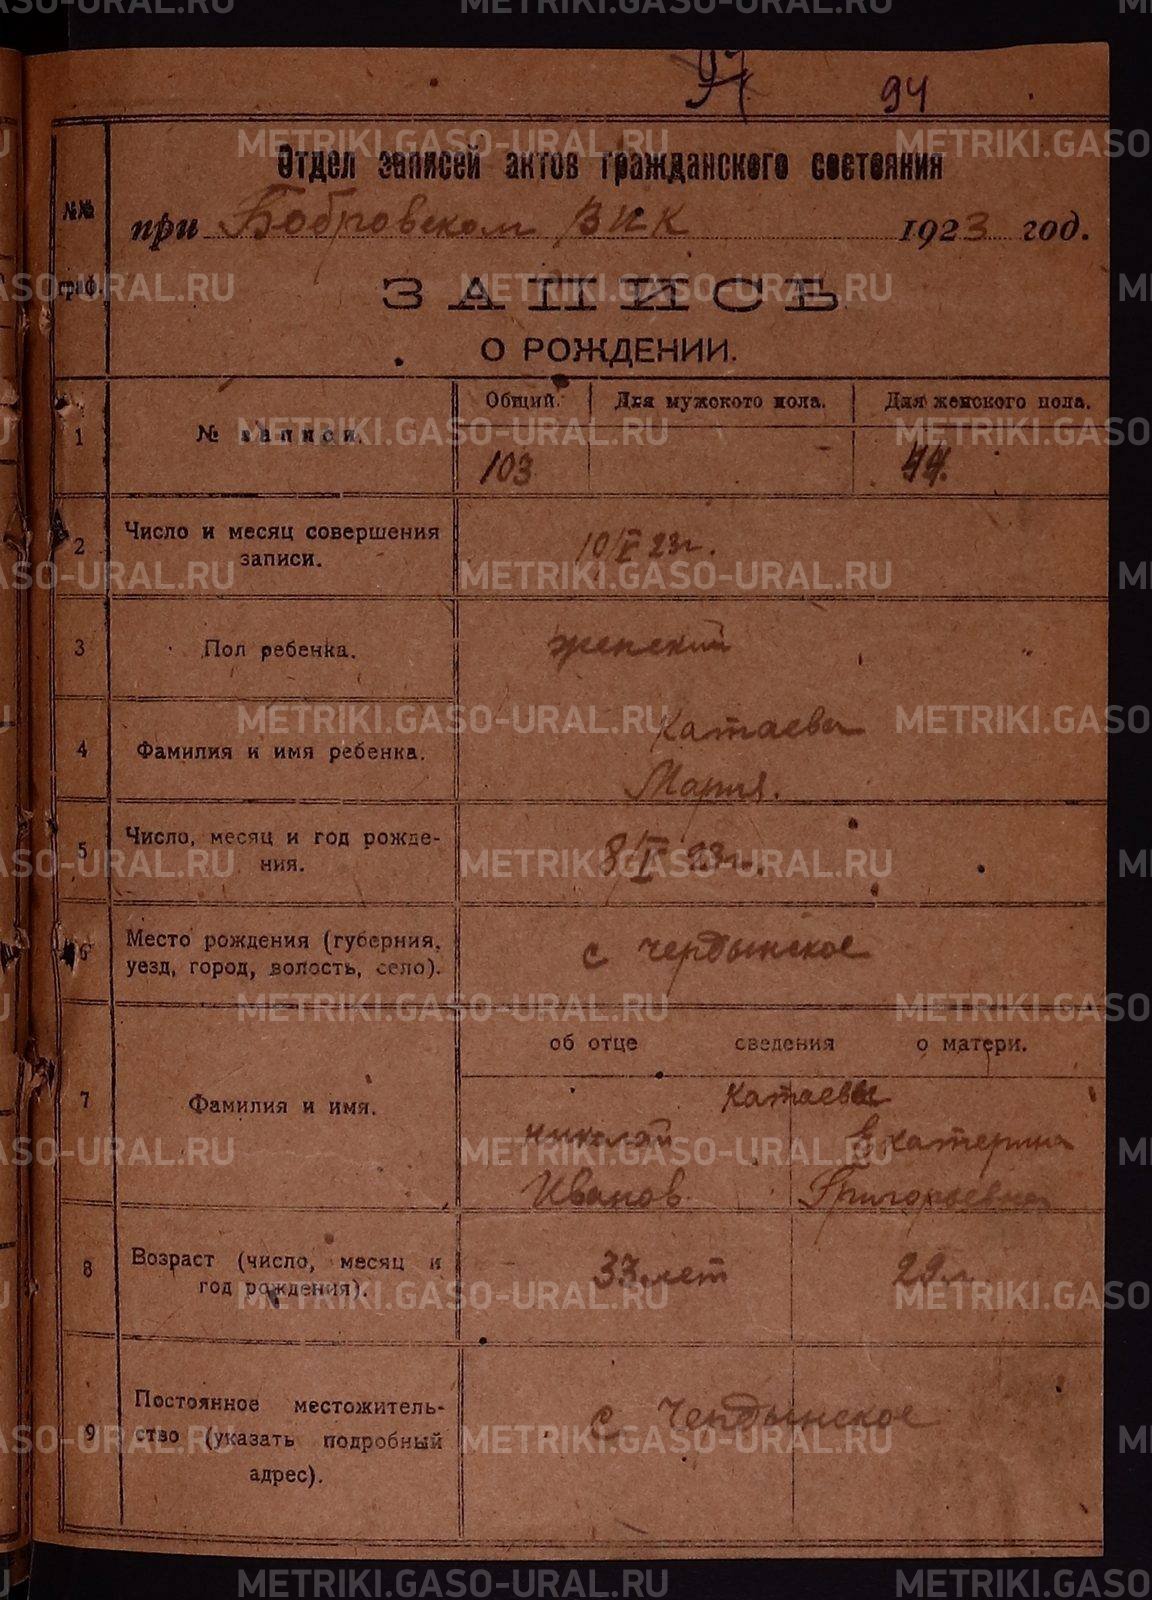 94
Отдел записей актов гражданского состояния
при Бобровском ВИК 1923 год.
№№ граф.
ЗАПИСЬ
О РОЖДЕНИИ.
1 № записи. Общий. Для мужского пола. Для женского пола.
103 44.
2 Число и месяц совершения записи. 10/V 23г.
3 Пол ребенка. женский
4 Фамилия и имя ребенка. Катаева
Мария.
5 Число, месяц и год рожде-
ния. 8/V 23г.
6 Место рождения (губерния,
уезд, город, волость, село). с Чердынское
об отце сведения о матери.
7 Фамилия и имя. Катаевы
Николай Екатерина
Иванов. Григорьевна
8 Возраст (число, месяц и
год рождения). 33 лет 29 л.
9 Постоянное местожитель-
ство (указать подробный
адрес). с. Чердынское
METRIKI.GASO-URAL.RU